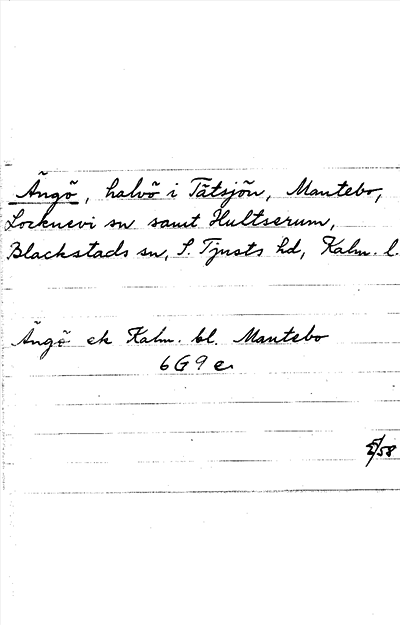 Ängö, halvö i Tätsjön, Mantebo,
Locknevi sn samt Hultserum,
Blackstads sn, S. Tjusts hd, Kalm. l.
Ängö ek Kalm. bl. Mantebo
6G9e
/58